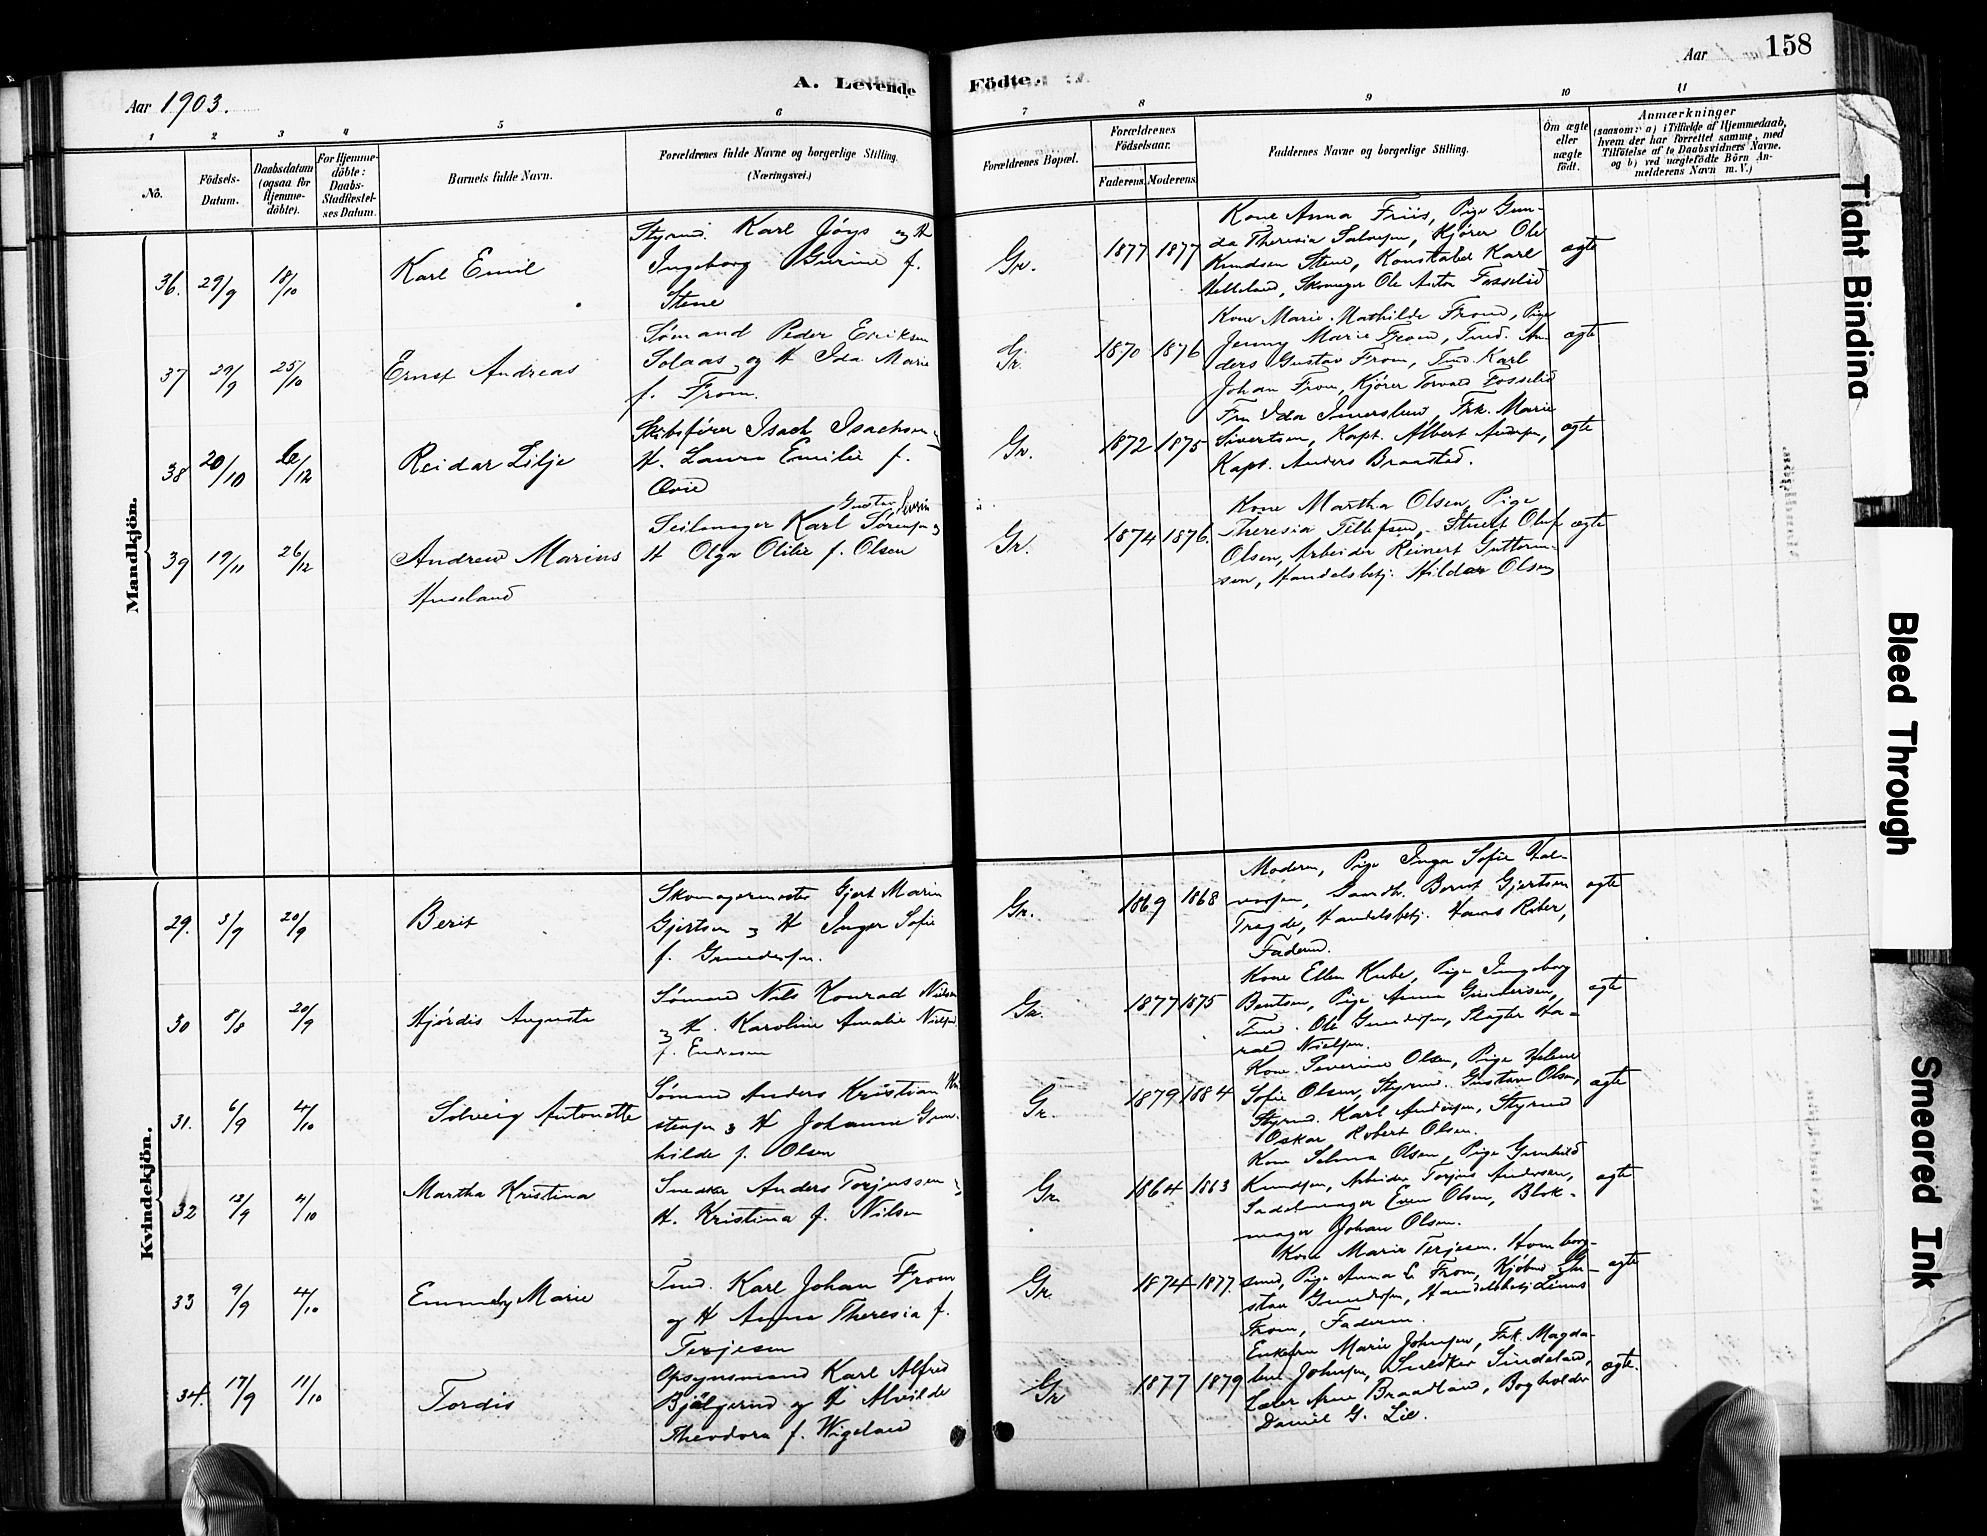 Aar 1903.
A. Levende
Födte.
Aar
158
1
2
3
4
5
6
7
8
9
10
11
No.
Födsels-
Datum.
Daabsdatum
(ogsaa for
Hjemme-
döbte).
For Hjemme-
döbte:
Daabs-
Stadfæstel-
ses Datum.
Barnets fulde Navn.
Forældrenes fulde Navne og borgerlige Stilling.
(Næringsvei.)
Forældrenes Bopæl.
Forældrenes
Födselsaar.
Faderens.
Moderens.
Faddernes Navne og borgerlige Stilling.
Om ægte
eller
uægte
födt.
Anmærkninger
(saasom: a) i Tilfælde af Hjemmedaab,
hvem der har forrettet samme, med
Tilföielse af to Daabsvidners Navne.
og b) ved uægtefödte Börn An-
melderens Navn m. V.)
Mandkjön.
36. 29/9 18/10
Karl Emil
Styrmd. Karl Jöys og H
Ingeborg Gurine f.
Stene
Gr.
1877 1877
Kone Anna Friis, Pige Gun-
da Theresia Salvesen, Kjører Ole
Knudsen Stene, Konstabel Karl
Helleland, Skomager Ole Anton Fosselid
ægte
37 29/9 25/10
Ernst Andreas
Sømand Peder Eriksen
Solaas og H Ida Marie
f. From.
Gr.
1870 1876
Kone Marie Mathilde From, Pige
Jenny Marie From, Tmd. An-
ders Gustav From, Tmd. Karl
Johan From, Kjører Torvald Fosselid
ægte
38 20/10 6/12
Reidar Lilje
Skibsfører Isach Isachsen
H. Laura Emilie f.
Gr.
1872 1875
Fru Ida Immerslund, Frk. Marie
Sivertsen, Kapt. Albert Andersen,
Kapt. Anders Braastad.
ægte
39 19/11 26/12
Andrew Marius
Huseland
Gustav Severin
Seilmager Karl Sørensen og
H Olga Otilie f. Olsen
Gr.
1874 1876.
Kone Martha Olsen, Pige
Theresia Tellefsen, Stuert Oluf
Olsen, Arbeider Reinert Guttorm-
sen, Handelsbetj. Hildar Olsen
ægte
Kvindekjön.
29. 5/9 20/9
Berit
Skomagermester Gjert Marin
Gjertsen og H Inger Sofie
f. Gundersen.
Gr.
1869 1868
Moderen, Pige Inga Sofie Hal-
vorsen, Landh. Bernt Gjertsen
Tregde, Handelsbetj. Hans Reber,
Faderen.
ægte
30 8/8 20/9
Hjørdis Auguste
Sømand Nils Konrad Nielsen
og H. Karoline Amalie Nielsen
f. Endresen
Gr.
1877 1875
Kone Ellen Kube, Pige Ingeborg
Bentsen, Pige Anna Gundersen,
Tmd. Ole Gundersen, Slagter Ha-
rald Nielsen.
ægte
31. 6/9 4/10
Solveig Antonette
Sømand Anders Kristian Kri-
stensen og H Johanne Gun-
hilde f. Olsen
Gr.
1879 1884
Kone Severine Olsen, Pige Helene
Sofie Olsen, Styrmd. Gustav Olsen,
Styrmd. Karl Andersen, Styrmd
Oskar Robert Olsen.
ægte
32 13/9 4/10
Martha Kristina
Snedker Anders Torjussen og
H. Kristina f. Nilsen
Gr.
1864 1863
Kone Selma Olsen, Pige Gunhild
Knudsen, Arbeider Torjus Andersen,
Sadelmager Even Olsen, Blok-
mager Johan Olsen.
ægte
33 9/9 4/10
Emmely Marie
Tmd. Karl Johan From
og H Anna Theresia f.
Terjesen
Gr.
1874 1877.
Kone Marie Terjesen. Homborg-
sund, Pige Anna E. From, Kjøbmd Gu-
stav Gundersen, Handelsbetj Linus
From, Faderen.
ægte
34. 17/9 11/10
Tordis
Opsynsmand Karl Alfred
Bjålgerud og H Alvilde
Theodora f. Wigeland
Gr
1877 1879
Enkefru Marie Johnsen, Frk. Magda-
lene Johnsen, Snedker Sindeland,
Lærer Arne Braadland, Bogholder
Daniel G. Lie.
ægte.
Tight Binding
Bleed Through
Smeared Ink